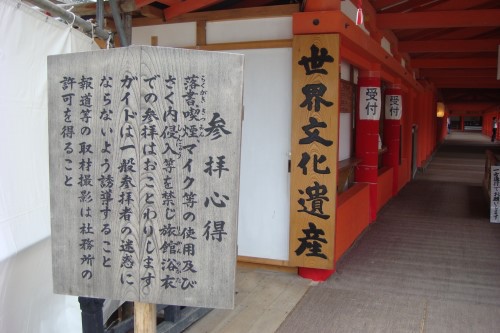 参拝心得
落書喫煙マイク等の使用及び
さく内侵入等を禁じ旅館浴衣
での参拝はおことわりします
ガイドは一般参拝者の迷惑に
ならないよう誘導すること
報道等の取材撮影は社務所の
許可を得ること
世界文化遺産
受付
受付